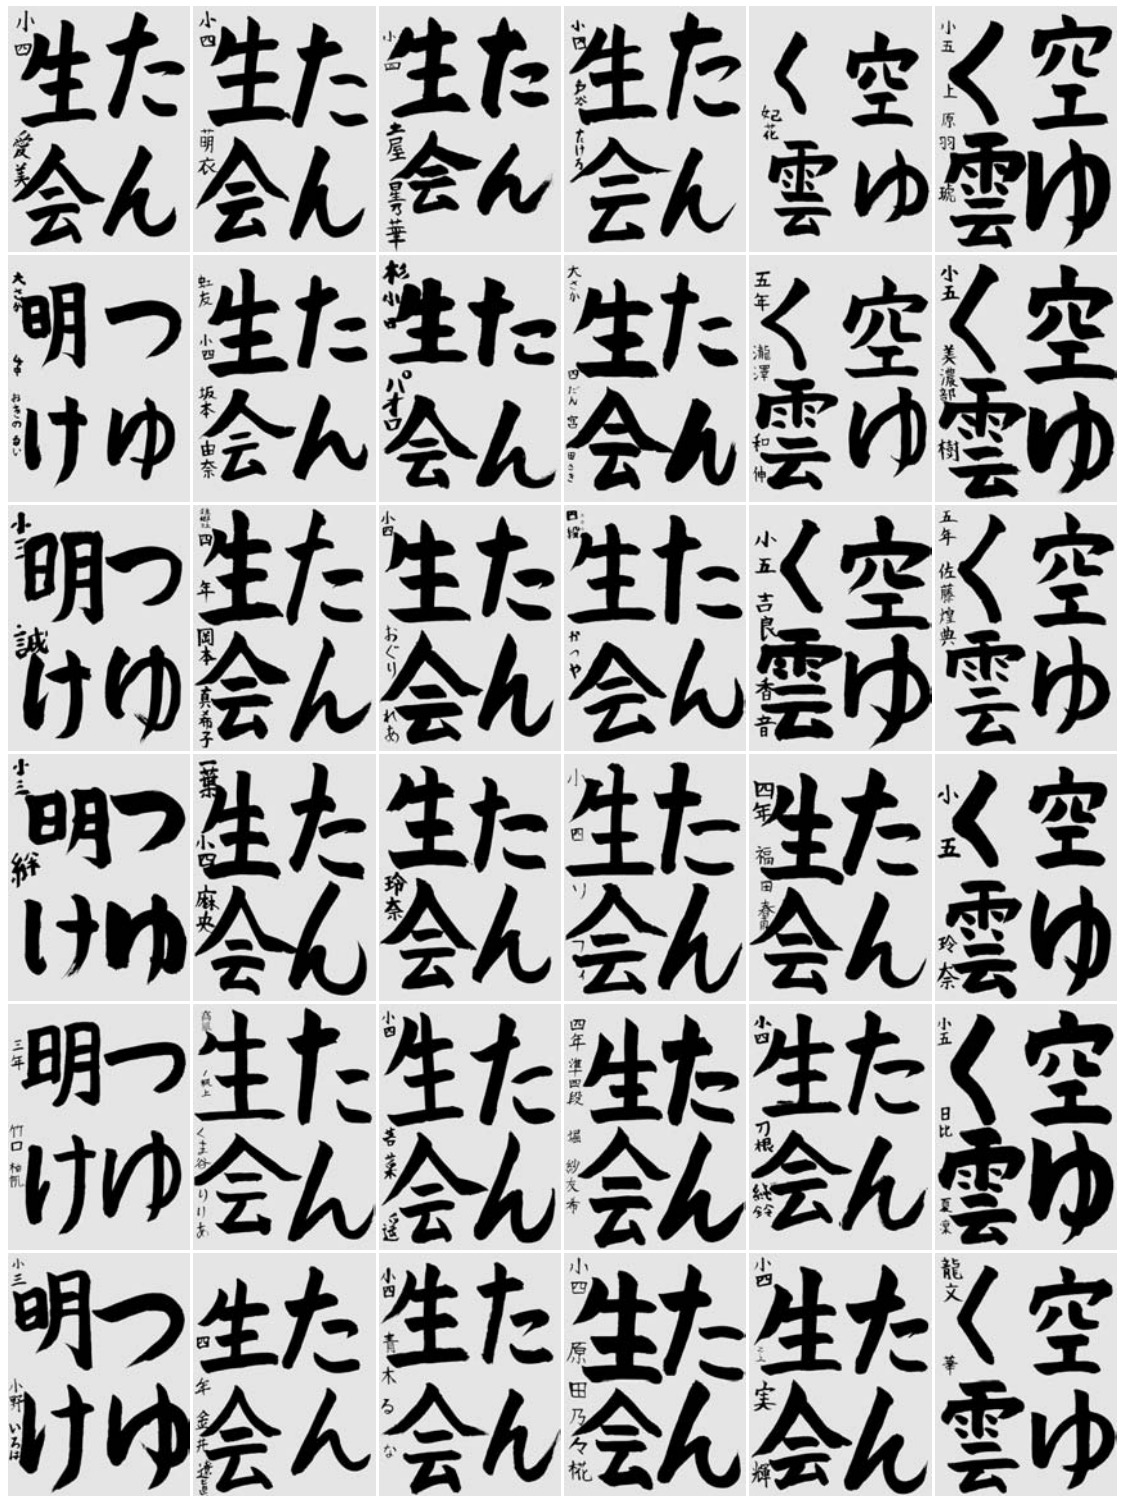 たん
生会
小四 愛美
たん
生会
小四 萌衣
たん
生会
小四 土屋 星乃華
たん
生会
小四 たける
空ゆ
く雲
妃花
空ゆ
く雲
小五 上原羽琉
つゆ
明け
大さか おぎの
たん
生会
虹友 小四 坂本 由奈
たん
生会
杉 小四 パオロ
たん
生会
大さか 四だん 宮田さき
空ゆ
く雲
五年 瀧澤 和伸
空ゆ
く雲
小五 美濃部 樹
つゆ
明け
小三 誠
たん
生会
四年 岡本 真希子
たん
生会
小四 おぐり れあ
たん
生会
四段 かつや
空ゆ
く雲
小五 吉良 香音
空ゆ
く雲
五年 佐藤煌典
つゆ
明け
小三
たん
生会
一葉 小四 麻央
たん
生会
玲奈
たん
生会
小四 ソフィ
たん
生会
四年 福田
空ゆ
く雲
小五 玲奈
つゆ
明け
三年 竹口
たん
生会
くま谷 りりあ
たん
生会
小四 若菜 遥
たん
生会
四年 準四段 堀 紗友希
たん
生会
小四 刀根
空ゆ
く雲
小五 日比 夏菜
つゆ
明け
小三 小野 いろは
たん
生会
四年 金井
たん
生会
小四 青木るな
たん
生会
小四 原田乃々椛
たん
生会
小四 実輝
空ゆ
く雲
龍文 華